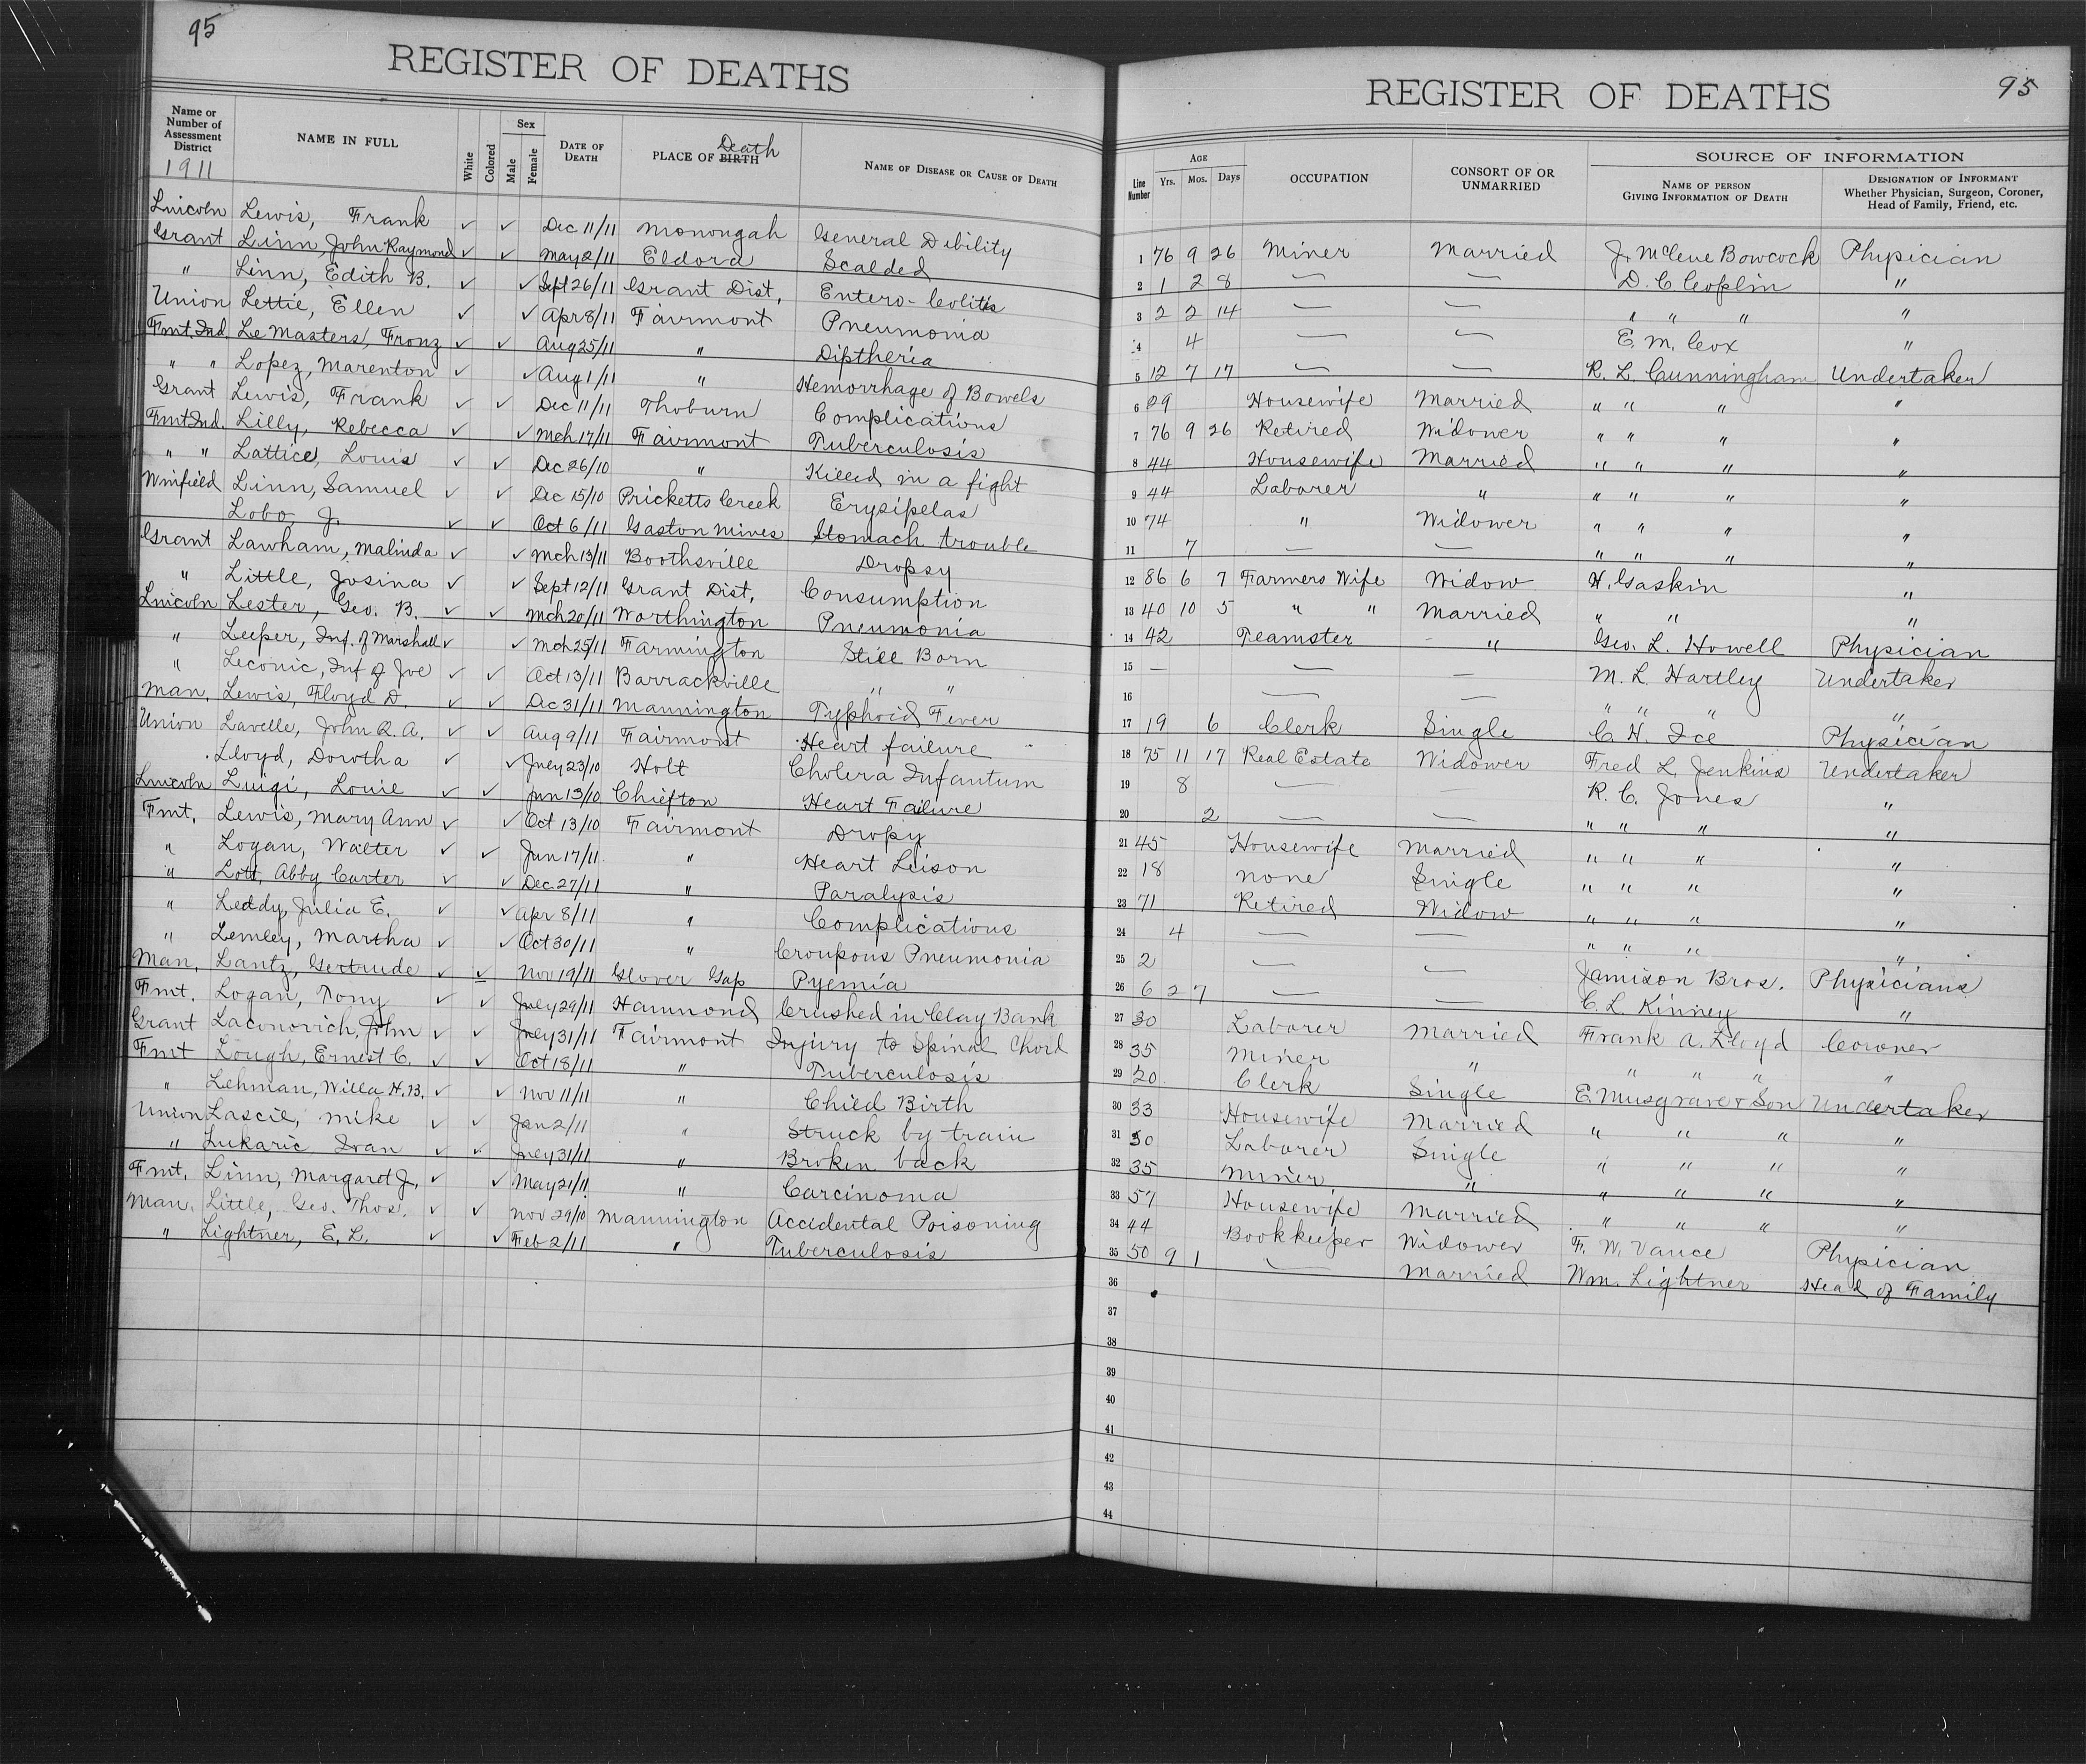 95
REGISTER OF DEATHS
Name or Number of Assessment District
NAME IN FULL
White
Colored
Sex
Male
Female
DATE OF DEATH
PLACE OF BIRTH Death
NAME OF DISEASE OR CAUSE OF DEATH
1911
Lincoln Lewis, Frank ✓ ✓ Dec 11/11 Monongah General Dibility
Grant Linn, John Raymond ✓ ✓ May 2/11 Eldora Scalded
" Linn, Edith B. ✓ ✓ Sept 26/11 Grant Dist, Entero-Colitis
Union Lettie, Ellen ✓ ✓ Apr 8/11 Fairmont Pneumonia
Fmt. Ind. Le Masters, Fronz ✓ ✓ Aug 25/11 " Diptheria
" " Lopez, Marenton ✓ ✓ Aug 1/11 " Hemorrhage of Bowels
Grant Lewis, Frank ✓ ✓ Dec 11/11 Thoburn Complications
Fmt Ind. Lilly, Rebecca ✓ ✓ Mch 17/11 Fairmont Tuberculosis
" " Lattice, Louis ✓ ✓ Dec 26/10 " Killed in a fight
Winfield Linn, Samuel ✓ ✓ Dec 15/10 Pricketts Creek Erysipelas
Lobo, J. ✓ ✓ Oct 6/11 Gaston Mines Stomach trouble
Grant Lawham, Malinda ✓ ✓ Mch 13/11 Boothsville Dropsy
" Little, Josina ✓ ✓ Sept 12/11 Grant Dist, Consumption
Lincoln Lester, Geo. B. ✓ ✓ Mch 20/11 Worthington Pneumonia
" Leeper, Inf. of Marshall ✓ ✓ Mch 25/11 Farmington Still Born
" Leconic, Inf of Joe ✓ ✓ Oct 13/11 Barrackville " "
Man. Lewis, Floyd D. ✓ ✓ Dec 31/11 Mannington Typhoid Fever
Union Lavelle, John Q. A. ✓ ✓ Aug 9/11 Fairmont Heart failure
Lloyd, Dorotha ✓ ✓ July 23/10 Holt Cholera Infantum
Lincoln Luigi, Louie ✓ ✓ Jun 13/10 Chiefton Heart Failure
Fmt. Lewis, Mary Ann ✓ ✓ Oct 13/10 Fairmont Dropy
" Logan, Walter ✓ ✓ Jun 17/11 " Heart Leison
" Lott, Abby Carter ✓ ✓ Dec. 27/11 " Paralysis
" Leddy, Julia E. ✓ ✓ Apr 8/11 " Complications
" Lemley, Martha ✓ ✓ Oct 30/11 " Croupous Pneumonia
Man. Lantz, Gertrude ✓ ✓ Nov 19/11 Glover Gap Pyemia
Fmt. Logan, Tony ✓ ✓ July 29/11 Hammond Crushed in Clay Bank
Grant Laconovich, John ✓ ✓ July 31/11 Fairmont Injury to Spinal Chord
Fmt Lough, Ernest C. ✓ ✓ Oct 18/11 " Tuberculosis
" Lehman, Willa H. B. ✓ ✓ Nov 11/11 " Child Birth
Union Lascie, Mike ✓ ✓ Jan 2/11 " Struck by train
" Lukaric Ivan ✓ ✓ July 31/11 " Broken back
Fmt. Linn, Margaret J. ✓ ✓ May 21/11 " Carcinoma
Man. Little, Geo. Thos. ✓ ✓ Nov 29/10 Mannington Accidental Poisoning
" Lightner, E. L. ✓ ✓ Feb 2/11 " Tuberculosis
95
REGISTER OF DEATHS
Line Number
AGE
Yrs. Mos. Days
OCCUPATION
CONSORT OF OR UNMARRIED
SOURCE OF INFORMATION
NAME OF PERSON GIVING INFORMATION OF DEATH
DESIGNATION OF INFORMANT
Whether Physician, Surgeon, Coroner, Head of Family, Friend, etc.
1 76 9 26 Miner Married J. McCleve Bowcock Physician
2 1 2 8 — — D. C. Coplin "
3 2 2 14 — — " " " "
4 4 — — E. M. Cox "
5 12 7 17 — — R. L. Cunningham Undertaker
6 29 Housewife Married " " " "
7 76 9 26 Retired Widower " " " "
8 44 Housewife Married " " " "
9 44 Laborer " " " " "
10 74 " Widower " " " "
11 7 — — " " " "
12 86 6 7 Farmers Wife Widow H. Gaskin "
13 40 10 5 " " Married " " "
14 42 Teamster " Geo. L. Howell Physician
15 — — — M. L. Hartley Undertaker
16 — — " " " "
17 19 6 Clerk Single C. H. Ice Physician
18 75 11 17 Real Estate Widower Fred L. Jenkins Undertaker
19 8 — — R. C. Jones "
20 2 — — " " " "
21 45 Housewife Married " " " "
22 18 none Single " " " "
23 71 Retired Widow " " " "
24 4 — — " " " "
25 2 — — Jamison Bros. Physicians
26 6 2 7 — — C. L. Kinney "
27 30 Laborer Married Frank A. Lloyd Coroner
28 35 Miner " " " " "
29 20 Clerk Single E. Musgrave & Son Undertaker
30 33 Housewife Married " " " "
31 30 Laborer Single " " " "
32 35 Miner " " " " "
33 57 Housewife Married " " " "
34 44 Bookkeeper Widower F. W. Vance Physician
35 50 9 1 — Married Wm. Lightner Head of Family
36
37
38
39
40
41
42
43
44